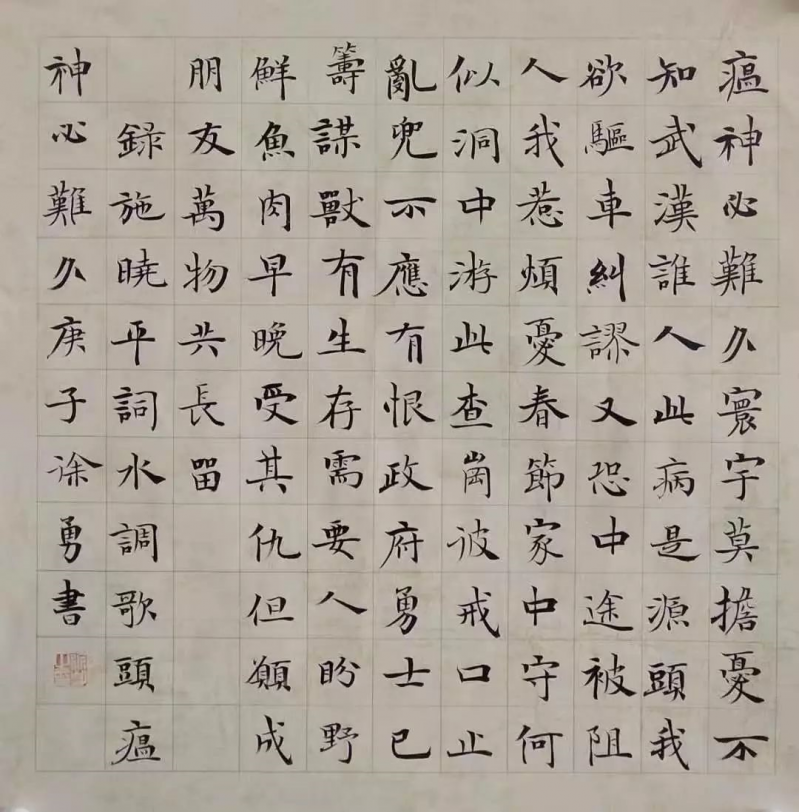 瘟神必難久寰宇莫擔憂不
知武漢誰人此病是源頭我
欲驅車糾謬又恐中途被阻
人我惹煩憂春節家中守何
似洞中游此查崗彼戒口止
亂兜不應有恨政府勇士已
籌謀獸有生存需要人盼野
鮮魚肉早晚受其仇但願成
朋友萬物共長留
錄施曉平詞水調歌頭瘟
神必難久庚子涂勇書